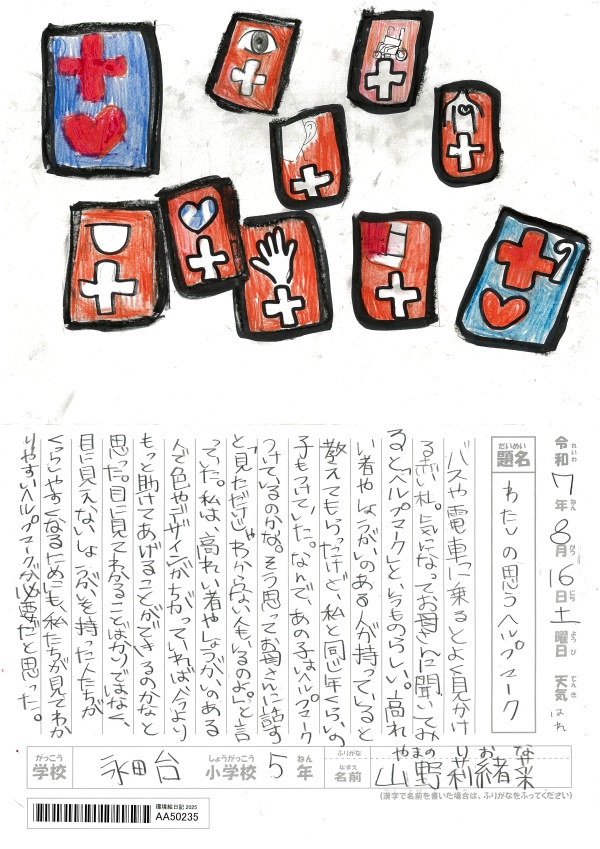 令和7年8月16日土曜日 天気 はれ
れいわ ねん がつ にち ようび てんき
だいめい
題名
わたしの思うヘルプマーク
バスや電車に乗るとよく見かけ
る赤い札。気になってお母さんに聞いてみ
ると「ヘルプマーク」というものらしい。高れ
い者やしょうがいのある人が持っていると
教えてもらったけど、私と同じ年くらいの
子もつけていた。なんで、あの子はヘルプマーク
つけているのかな。そう思ってお母さんに話す
と「見ただけじゃわからない人もいるのよ。」と言
っていた。私は、高れい者やしょうがいのある
人で色やデザインがちがっていれば今より
もっと助けてあげることができるのかなと
思った。目に見てわかることばかりではなく、
目に見えないしょうがいを持った人たちが
くらしやすくなるためにも、私たちが見てわか
りやすいヘルプマークが必要だと思った。
がっこう
学校
永田台
しょうがっこう
小学校
5
ねん
年
ふりがな
やまの りおな
なまえ
名前
山野莉緒菜
(漢字で名前を書いた場合は、ふりがなをふってください)
環境絵日記 2025
AA50235